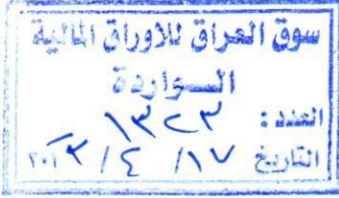 سوق العراق للاوراق المالية
الواردة
العدد : ١٣٢٣
التاريخ ١٧ / ٤ / ٢٠١٣